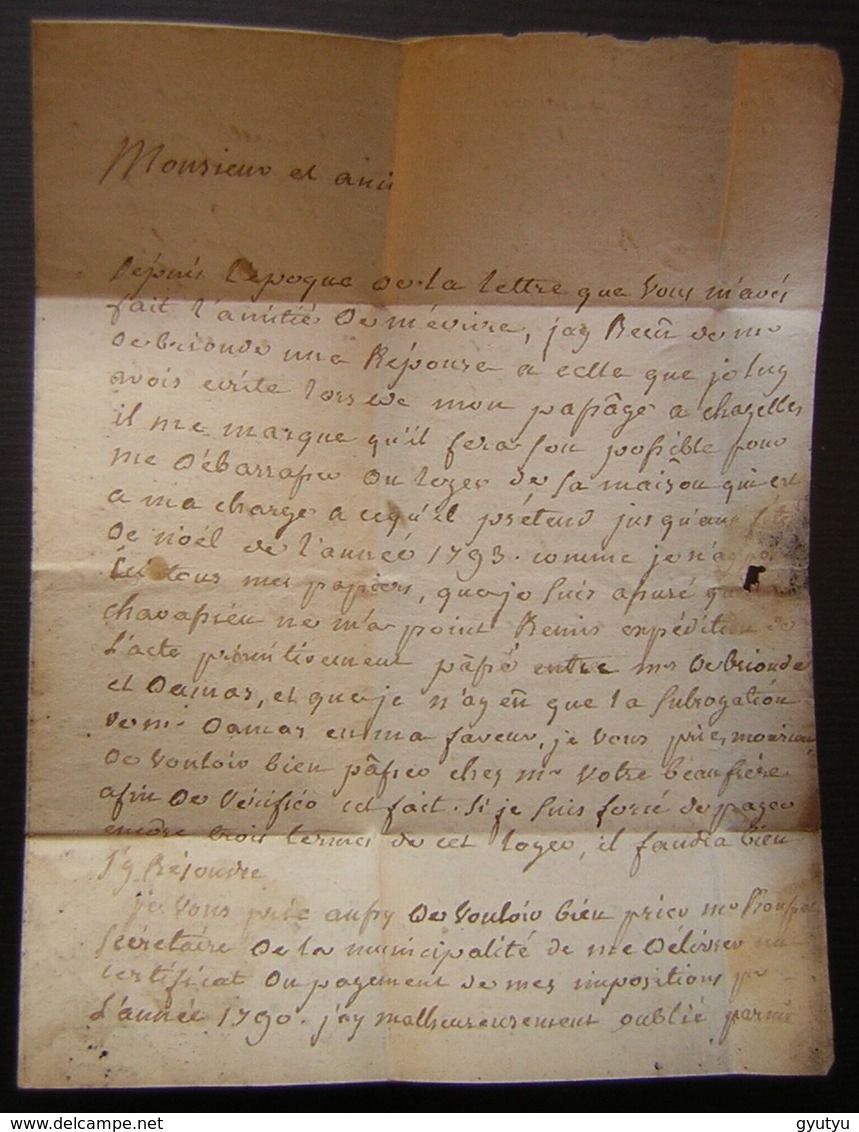 Monsieur et ami
Depuis l'epoque de la lettre que vous m'avés
fait l'amitié de m'écrire, j'ay Reçu de mr
de brionde une Réponse a celle que je luy
avois ecrite lors de mon passage a chazelles
il me marque qu'il fera son possible pour
me débarrasser du loyer de sa maison qui est
a ma charge a ce qu'il prétend jusqu'aux
de noël de l'année 1793. comme je n'ay
ici tous mes papiers, que je suis assuré que
chavassieu ne m'a point Remis expédition de
L'acte primitivement passé entre mrs Debrionde
et Damas, et que je n'ay eû que la Subrogation
de mr Damas en ma faveur, je vous prie, monsieur
de vouloir bien passer chez mr votre beaufrére
afin de vérifier ce fait. Si je suis forcé de payer
encore trois termes de cet loyer, il faudra bien
s'y Résoudre
je vous prie aussy de vouloir bien prier mr
Sécrétaire de la municipalité de me délivrer un
certificat du payement de mes impositions pr
L'année 1790. j'ay malheureusement oublié parmi
gyutyu